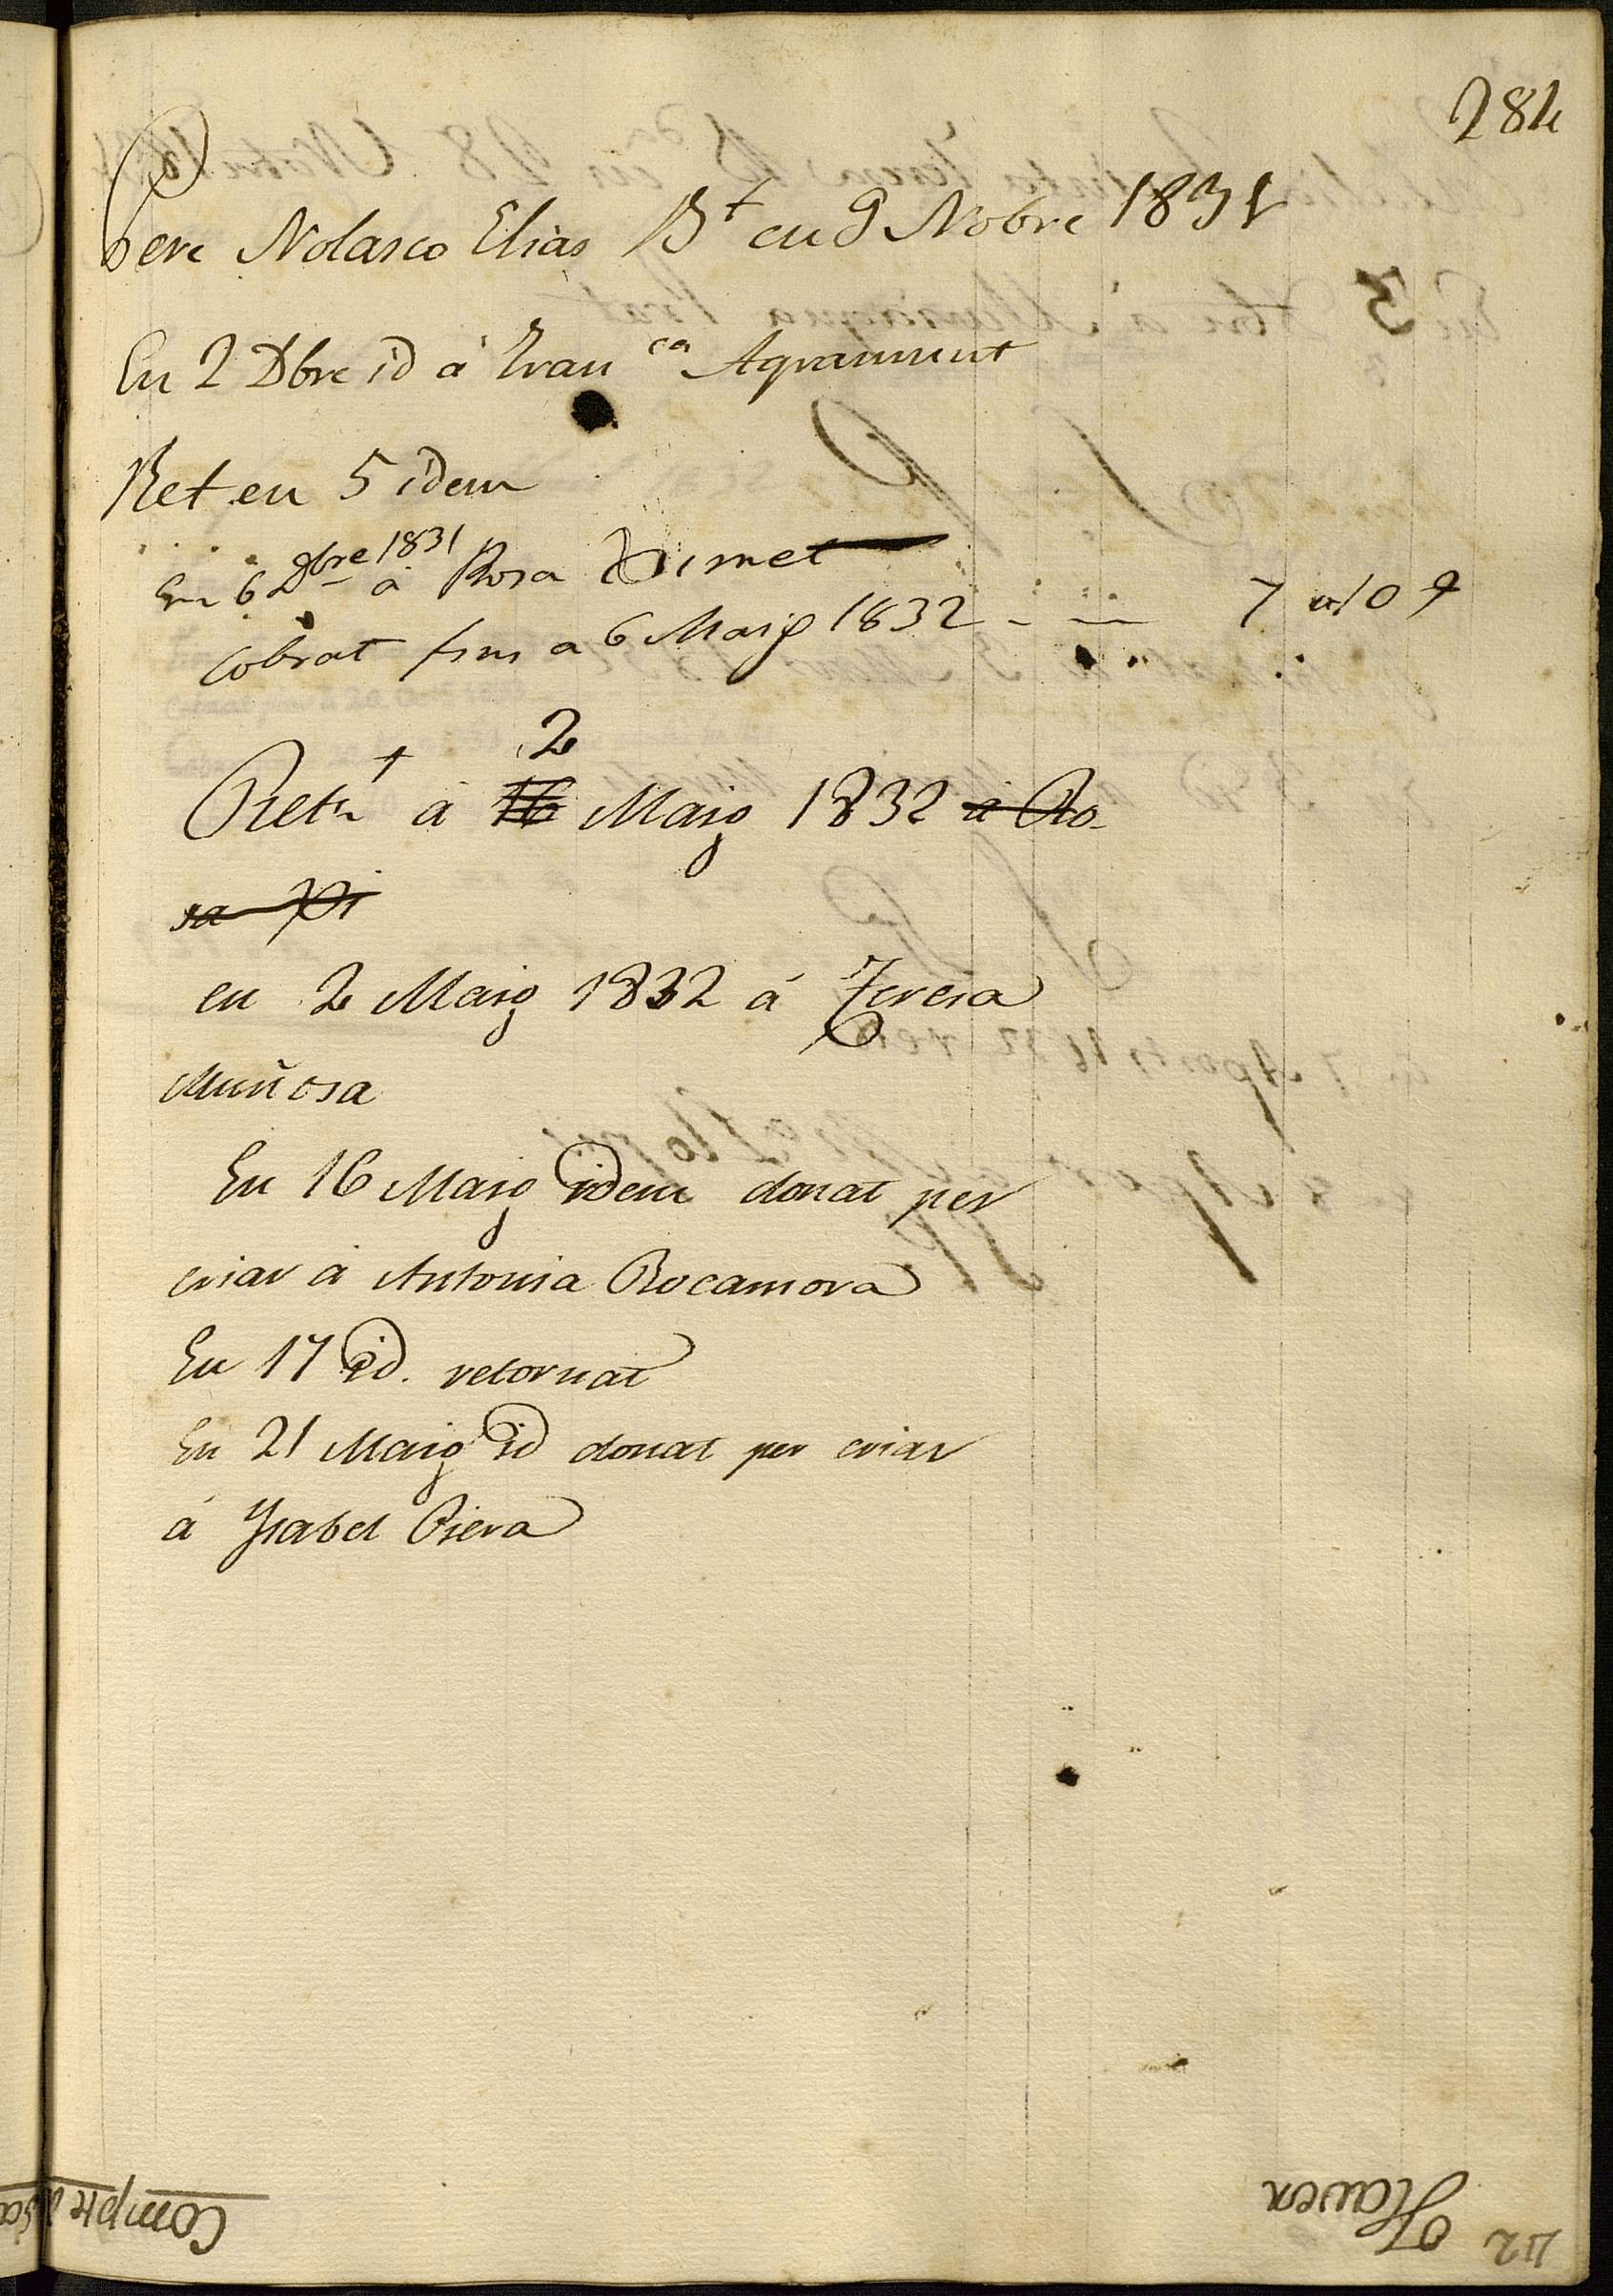 284
Pere Nolasco Elias Bt en 9 Nobre 1831
En 2 Dbre id á Franca Agramunt
Ret en 5 idem
En 6 Dbre 1831 á Rosa Ximet
Cobrat fins a 6 Maig 1832 - — 7 10
2
Rett á 16 Maig 1832 á Ro-
sa Xi
en 2 Maig 1832 á Teresa
Muñosa
En 16 Maig idem donat per
criar á Antonia Rocamora
En 17 id. retornat
En 21 Maig id donat per criar
á Ysabel Piera
42
Haver
Compte